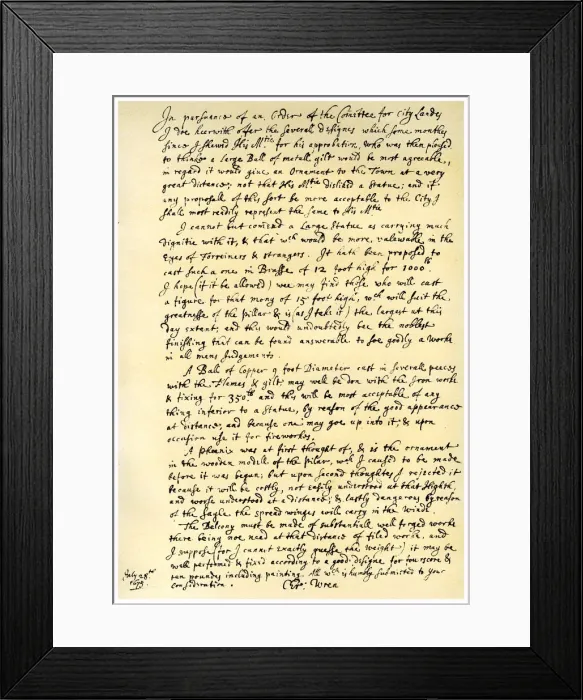 In pursuance of an Order of the Comittee for City Landes
I doe heerwith offer the Severall designes which some monthes
Since I shewed His Mtie for his approbation, who was then pleased
to thinke a large Ball of metall gilt would be most agreeable,
in regard it would give an Ornament to the Town at a very
great distance; not that His Mtie disliked a Statue; and if
any proposall of this sort be more acceptable to the City I
shall most readily represent the same to His Mtie
I cannot but comend a Large Statue as carrying much
dignitie with it, & that wch would be more valewable in the
Eyes of Forreiners & strangers. It hath been proposed to
cast such a one in Brasse of 12 foot high for 1000lb
I hope (if it be allowed) wee may find those who will cast
a figure for that mony of 15 foot high, wch will suit the
greatnesse of the pillar & is (as I take it) the largest at this
day extant; and this would undoubtedly bee the noblest
finishing that can be found answerable to soe goodly a worke
in all mens Judgements.
A Ball of Copper 9 foot Diameter cast in severall peeces
with the Flames & gilt may well be don with the Iron worke
& fixing for 350lb and this will be most acceptable of any
thing inferior to a Statue, by reason of the good appearance
at distance, and because one may goe up into it; & upon
occasion use it for fireworkes.
A Phoenix was at first thought of; & is the ornament
in the wooden modell of the pillar, wch I caused to be made
before it was begun; but upon second thoughtes I rejected it
because it will be costly, not easily understood at that Highth,
and worse understood at a distance; & lastly dangerous by reason
of the sayle the spread winges will carry in the winde.
The Balcony must be made of substantiall well forged worke
there being noe need at that distance of filed worke, and
I suppose (for I cannot exactly guesse the weight) it may be
well performed & fixed according to a good designe for fourscore &
ten poundes including painting. All wch is humbly submitted to your
consideration.
July 28th
1675
Chr: Wren